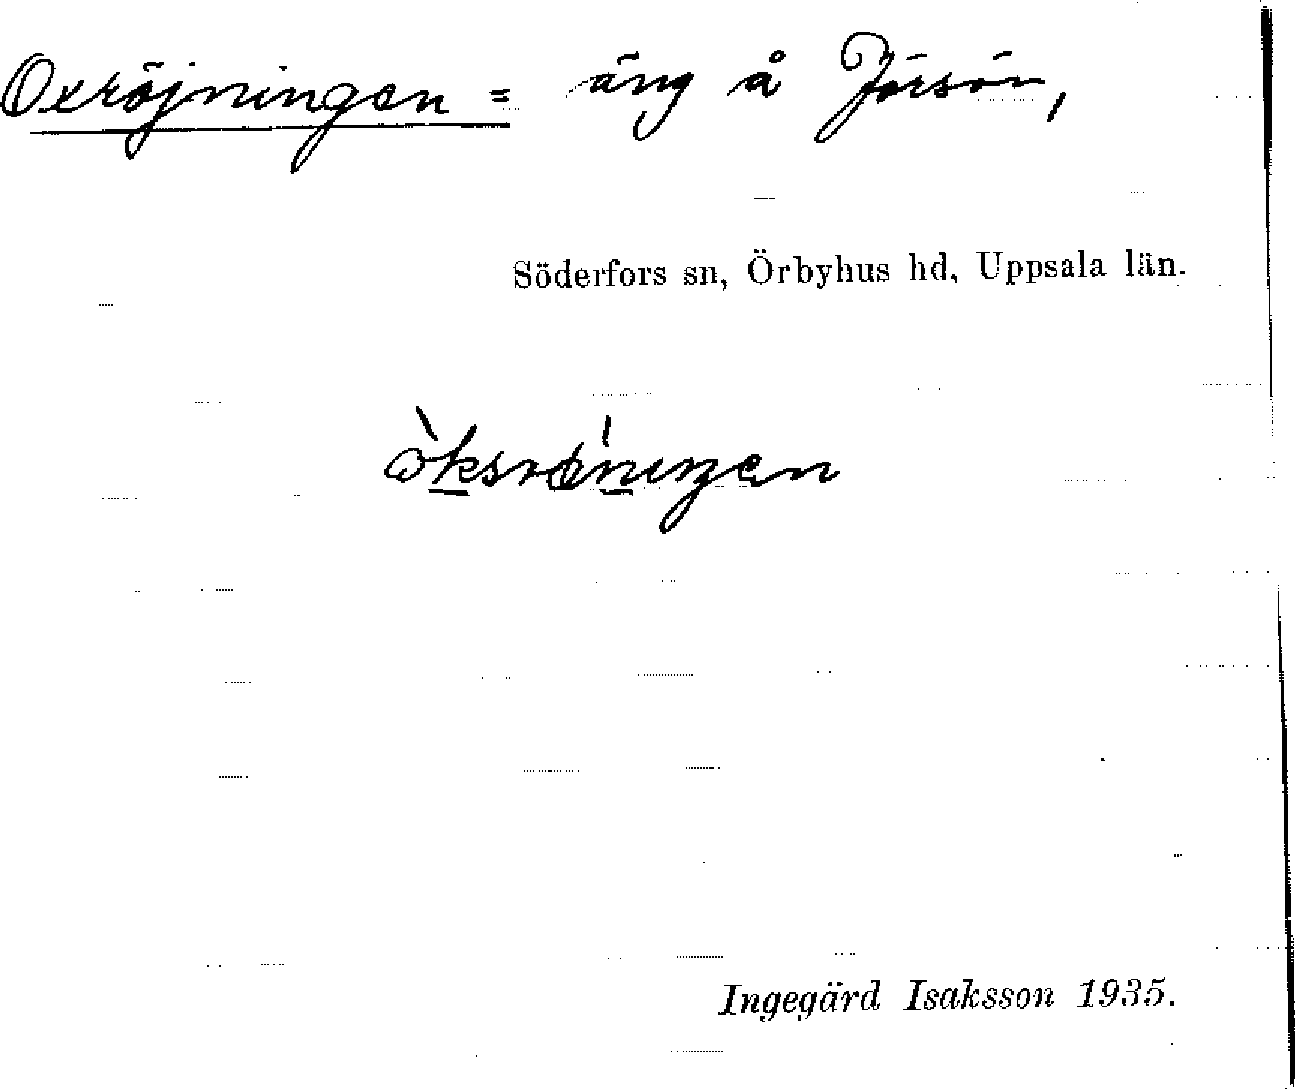 Oxröjningen = äng å Jörsön,
Söderfors sn, Örbyhus hd, Uppsala län.
Ingegärd Isaksson 1935.